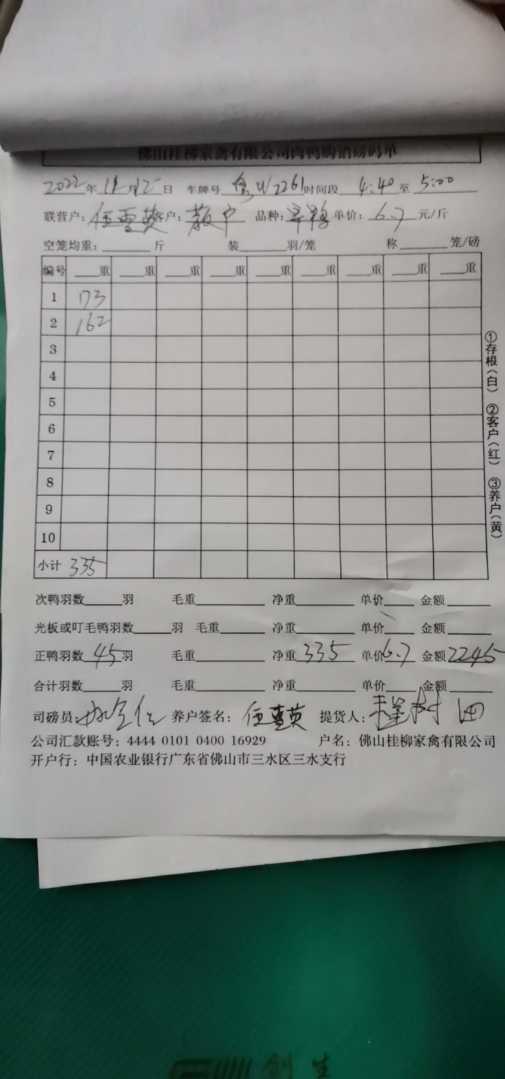 佛山桂柳家禽有限公司肉鸭购销磅码单
2022年12月12日 车牌号 U2261 时间段 4:40 至 5:00
联营户: 伍雪英 客户: 散户 品种: 单价: 6.7 元/斤
空笼均重: 斤 装 羽/笼 称 笼/磅
编号 重 重 重 重 重 重 重 重 重
1 173
2 162
3
4
5
6
7
8
9
10
小计 335
①存根(白) ②客户(红) ③养户(黄)
次鸭羽数 羽 毛重 净重 单价 金额
光板或叮毛鸭羽数 羽 毛重 净重 单价 金额
正鸭羽数 45 羽 毛重 净重 335 单价 6.7 金额 2245
合计羽数 羽 毛重 净重 单价 金额
司磅员: 养户签名: 伍雪英 提货人:
公司汇款账号: 4444 0101 0400 16929 户名: 佛山桂柳家禽有限公司
开户行: 中国农业银行广东省佛山市三水区三水支行